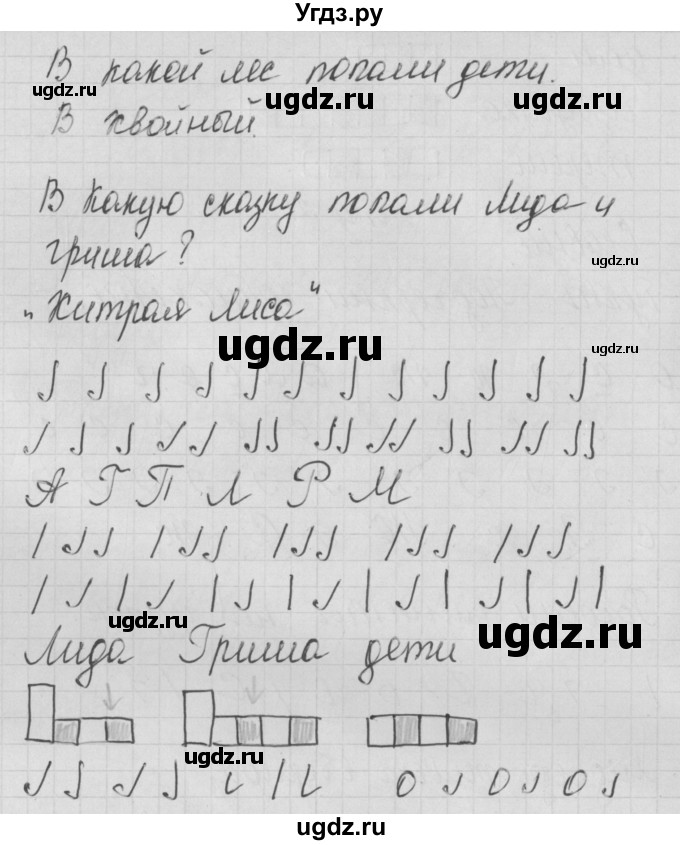 Угдз.ру
В какой лес попали дети.
ugdz.ru ugdz.ru ugdz.ru
В хвойный.
В какую сказку попали Лида и
Гриша?
ugdz.ru
„Хитрая Лиса“
ugdz.ru ugdz.ru
А Г П Л Р М
ugdz.ru ugdz.ru
Лида Гриша дети
ugdz.ru
ugdz.ru